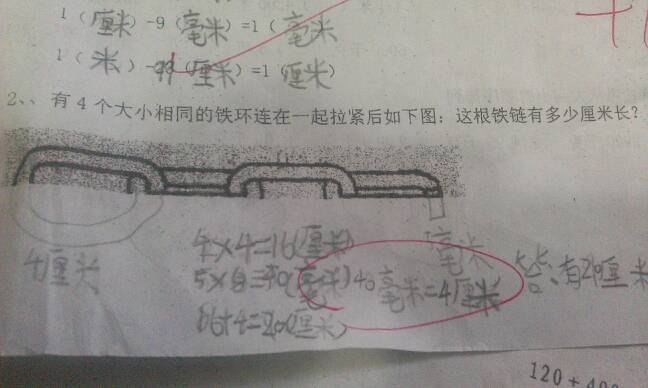 1（厘米）-9（毫米）=1（毫米
1（米）-99（厘米）=1（厘米）
2、、有4个大小相同的铁环连在一起拉紧后如下图：这根铁链有多少厘米长？
4厘米
毫米
4×4=16(厘米)
5×8=40(毫米) 40毫米=4厘米
16+4=20(厘米)
答：有20厘米
120+